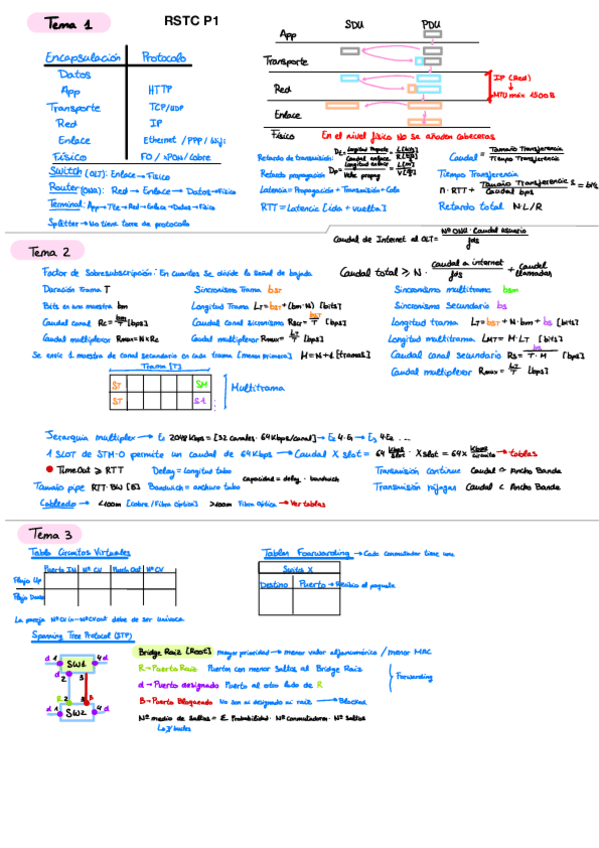 Tema 1
RSTC P1
Encapsulación Protocolo
Datos
App HTTP
Transporte TCP/UDP
Red IP
Enlace Ethernet / PPP / Wifi
Físico FO / XPON / Cobre
Switch (OLT): Enlace → Físico
Router (ONU): Red → Enlace → Datos → Físico
Terminal: App → Tte → Red → Enlace → Datos → Físico
Splitter → No tiene torre de protocolo
SDU PDU
App
Transporte
Red
Enlace
Físico
IP (Red)
MTU máx 1500B
En el nivel físico NO se añaden cabeceras
Retardo de transmisión:
Retardo propagación
Latencia = Propagación + Transmisión + Cola
RTT = Latencia [ida + vuelta]
Caudal = Tamaño Transferencia / Tiempo Transferencia
Tiempo Transferencia
n·RTT + Tamaño Transferencia / Caudal bps
Retardo total N·L/R
Caudal de Internet al OLT = Nº ONU · Caudal usuario / fds
Tema 2
Factor de Sobresubscripción: En cuantos se divide la señal de bajada
Caudal total ≥ N · caudal a internet / fds + caudal llamadas
Duración Trama T
Bits en una muestra bm
Caudal canal Rc = bm/T [bps]
Caudal multiplexor Rmux = N×Rc
Sincronismo Trama bst
Longitud Trama LT = bst + (bm·N) [bits]
Caudal canal sincronismo Rscr = bst/T [bps]
Caudal multiplexor Rmux = LT/T [bps]
Sincronismo multitrama bsm
Sincronismo secundario bs
Longitud trama LT = bst + N·bm + bs [bits]
Longitud multitrama LMT = M·LT [bits]
Caudal canal secundario Rs = bs/T·M [bps]
Caudal multiplexor Rmux = LT/T [bps]
Se envía 1 muestra de canal secundario en cada trama [menos primera] M = N+1 [tramas]
Trama [T]
ST SM
ST S1
Multitrama
Jerarquía multiplex → E1 2048 Kbps = [32 canales · 64 Kbps/canal] → E2 4·E1 → E3 4·E2 ...
1 SLOT de STM-0 permite un caudal de 64 Kbps → Caudal X slot = 64 Kbps/slot · X slot = 64X Kbps/circuito → tablas
TimeOut ≥ RTT
Delay = longitud tubo
capacidad = delay · bandwich
Transmisión continue Caudal = Ancho Banda
Tamaño pipe RTT·BW [B]
Bandwich = anchura tubo
Transmisión ráfagas Caudal < Ancho Banda
Cableado → <100m [Cobre / Fibra Óptica] >100m Fibra Óptica → Ver tablas
Tema 3
Tabla Circuitos Virtuales
Puerto IN Nº CV Puerto Out Nº CV
Flujo Up
Flujo Down
La pareja Nº CV in - Nº CV out debe de ser unívoca
Tablas Foorwarding → Cada conmutador tiene una
Switch X
Destino Puerto → Recibio el paquete
Spanning Tree Protocol (STP)
d 1 SW1 4 d
2 3
d d
R 2 3 B
d 1 SW2 4 d
Bridge Raiz [Root] mayor prioridad → menor valor alfanumérico / menor MAC
R → Puerto Raiz Puerto con menor saltos al Bridge Raiz
d → Puerto designado Puerto al otro lado de R
Forwarding
B → Puerto Bloqueado No son ni designado ni raiz → Blocked
Nº medio de saltos = Σ Probabilidad · Nº conmutadores · Nº saltos